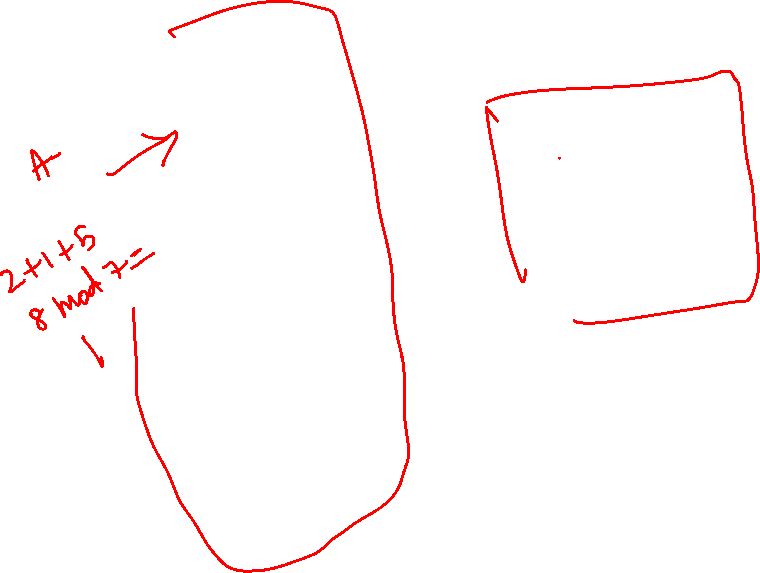 A
2+1+5
8 mod 7 =